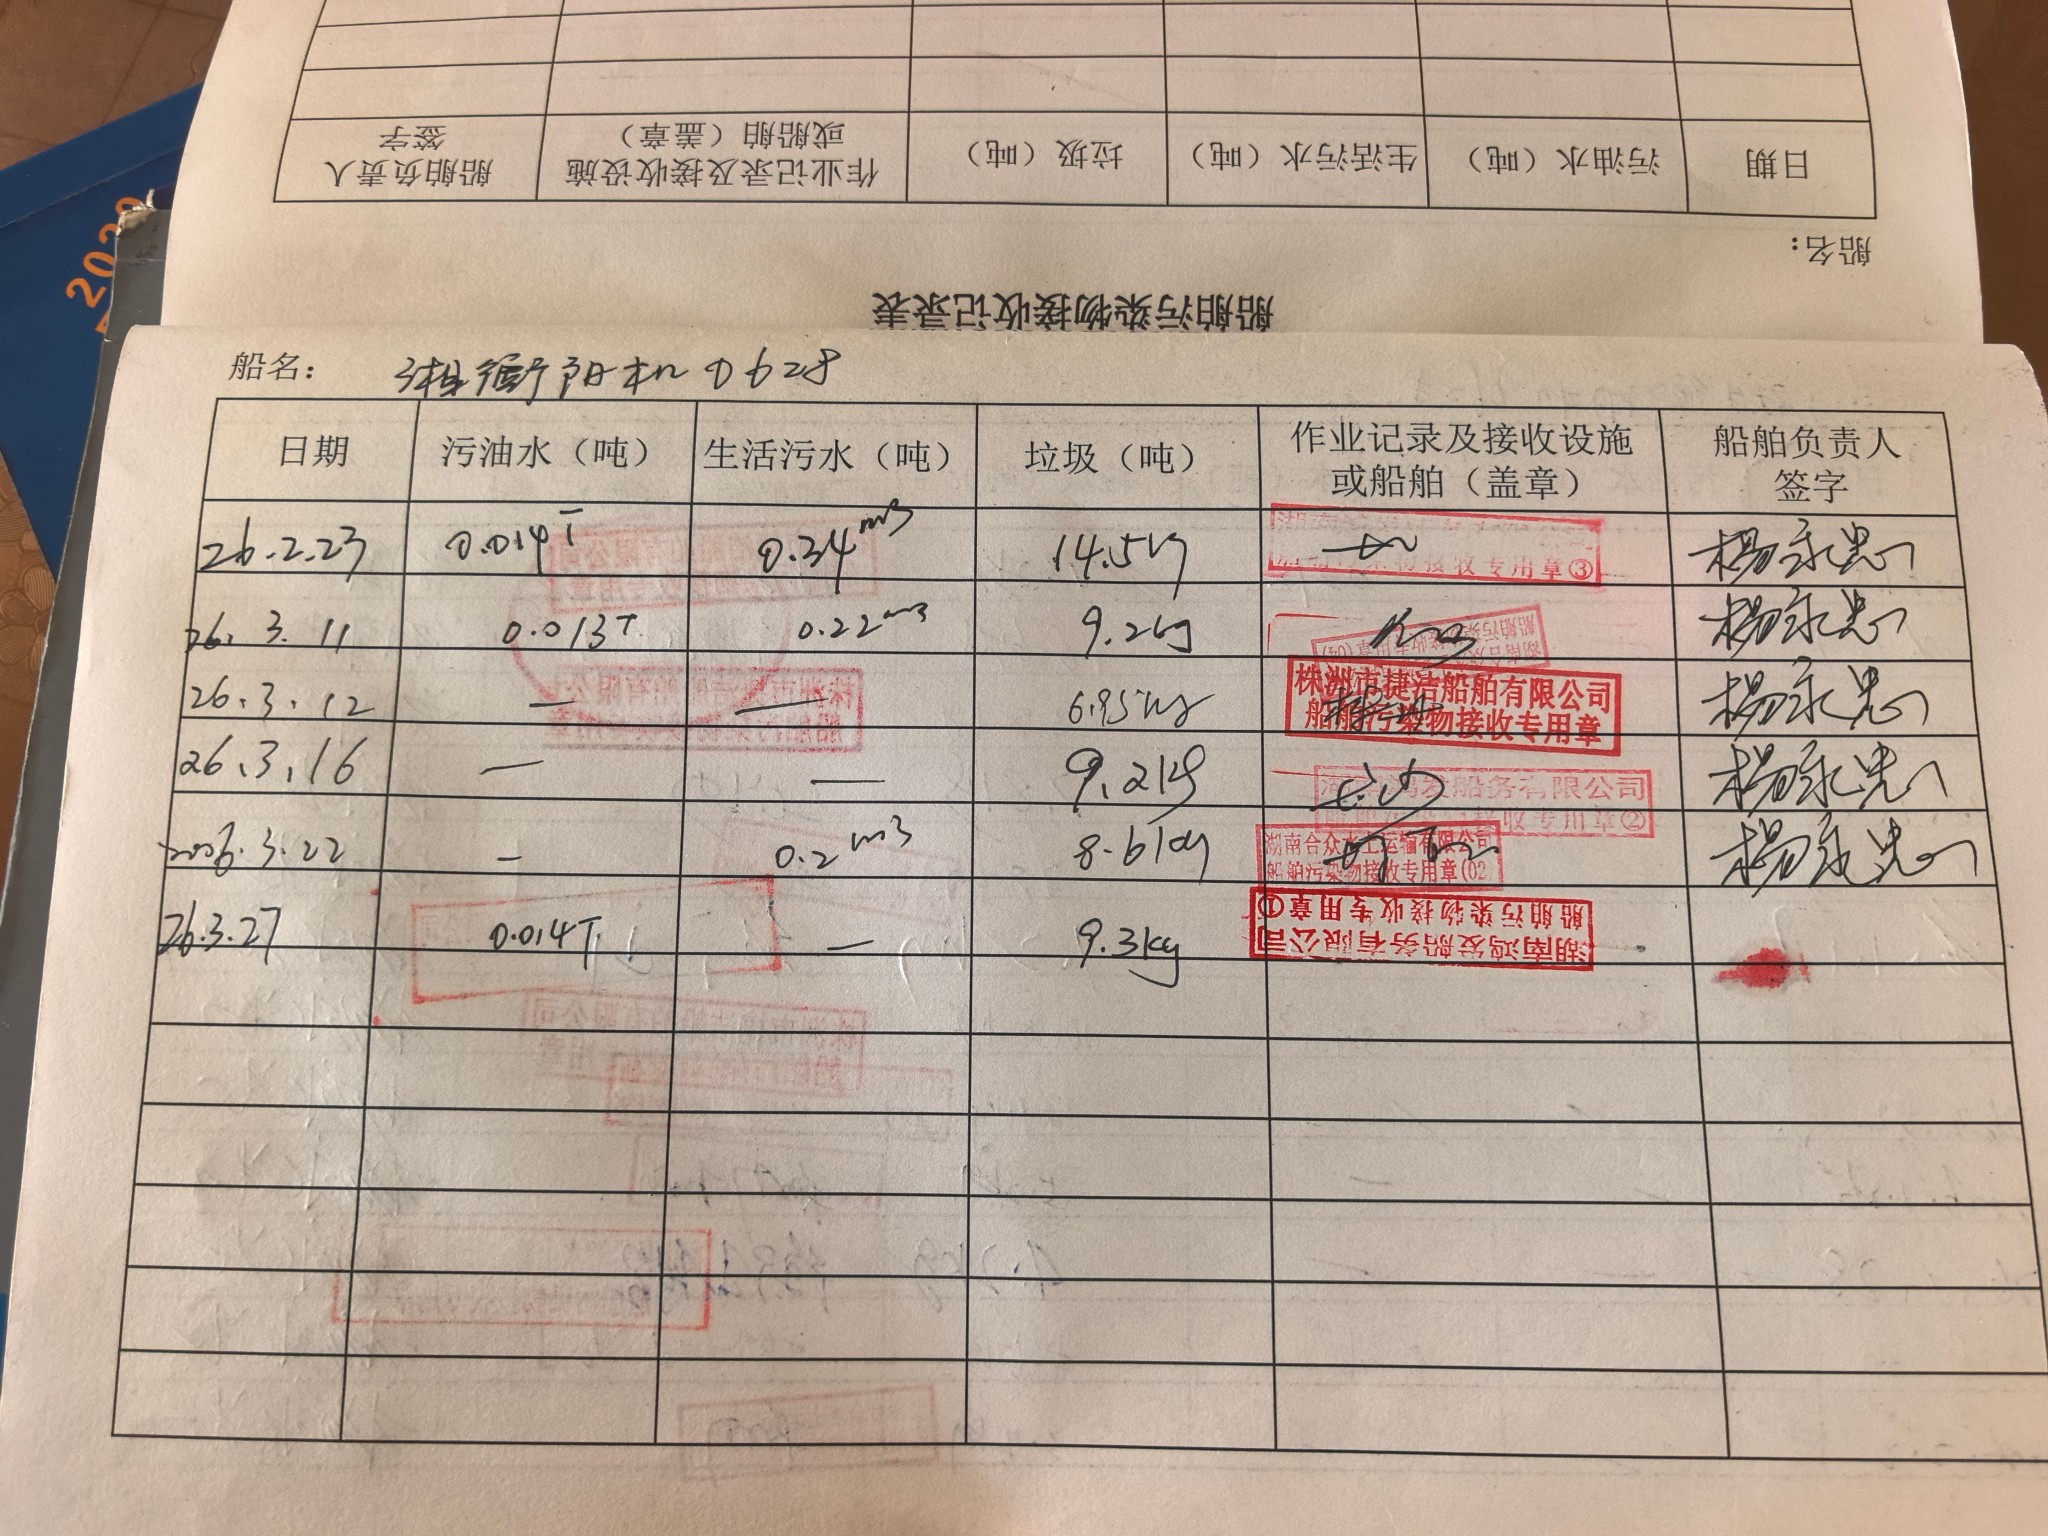 船舶负责人
签字
作业记录及接收设施
或船舶（盖章）
垃圾（吨）
生活污水（吨）
污油水（吨）
日期
船名：
船舶污染物接收记录表
船名： 湘衡阳机0628
日期 污油水（吨） 生活污水（吨） 垃圾（吨） 作业记录及接收设施或船舶（盖章） 船舶负责人签字
26.2.23 0.014T 0.34m3 14.5kg 接收专用章③ 杨永忠
26.3.11 0.013T 0.22m3 9.2kg 杨永忠
26.3.12 — — 6.95kg 株洲市捷洁船舶有限公司 船舶污染物接收专用章 杨永忠
26.3.16 — — 9.2kg 发船务有限公司 接收专用章② 杨永忠
2026.3.22 — 0.2m3 8.6kg 湖南合众水上运输有限公司 船舶污染物接收专用章(02 杨永忠
26.3.27 0.014T — 9.3kg 湖南鸿发船务有限公司 船舶污染物接收专用章①
202